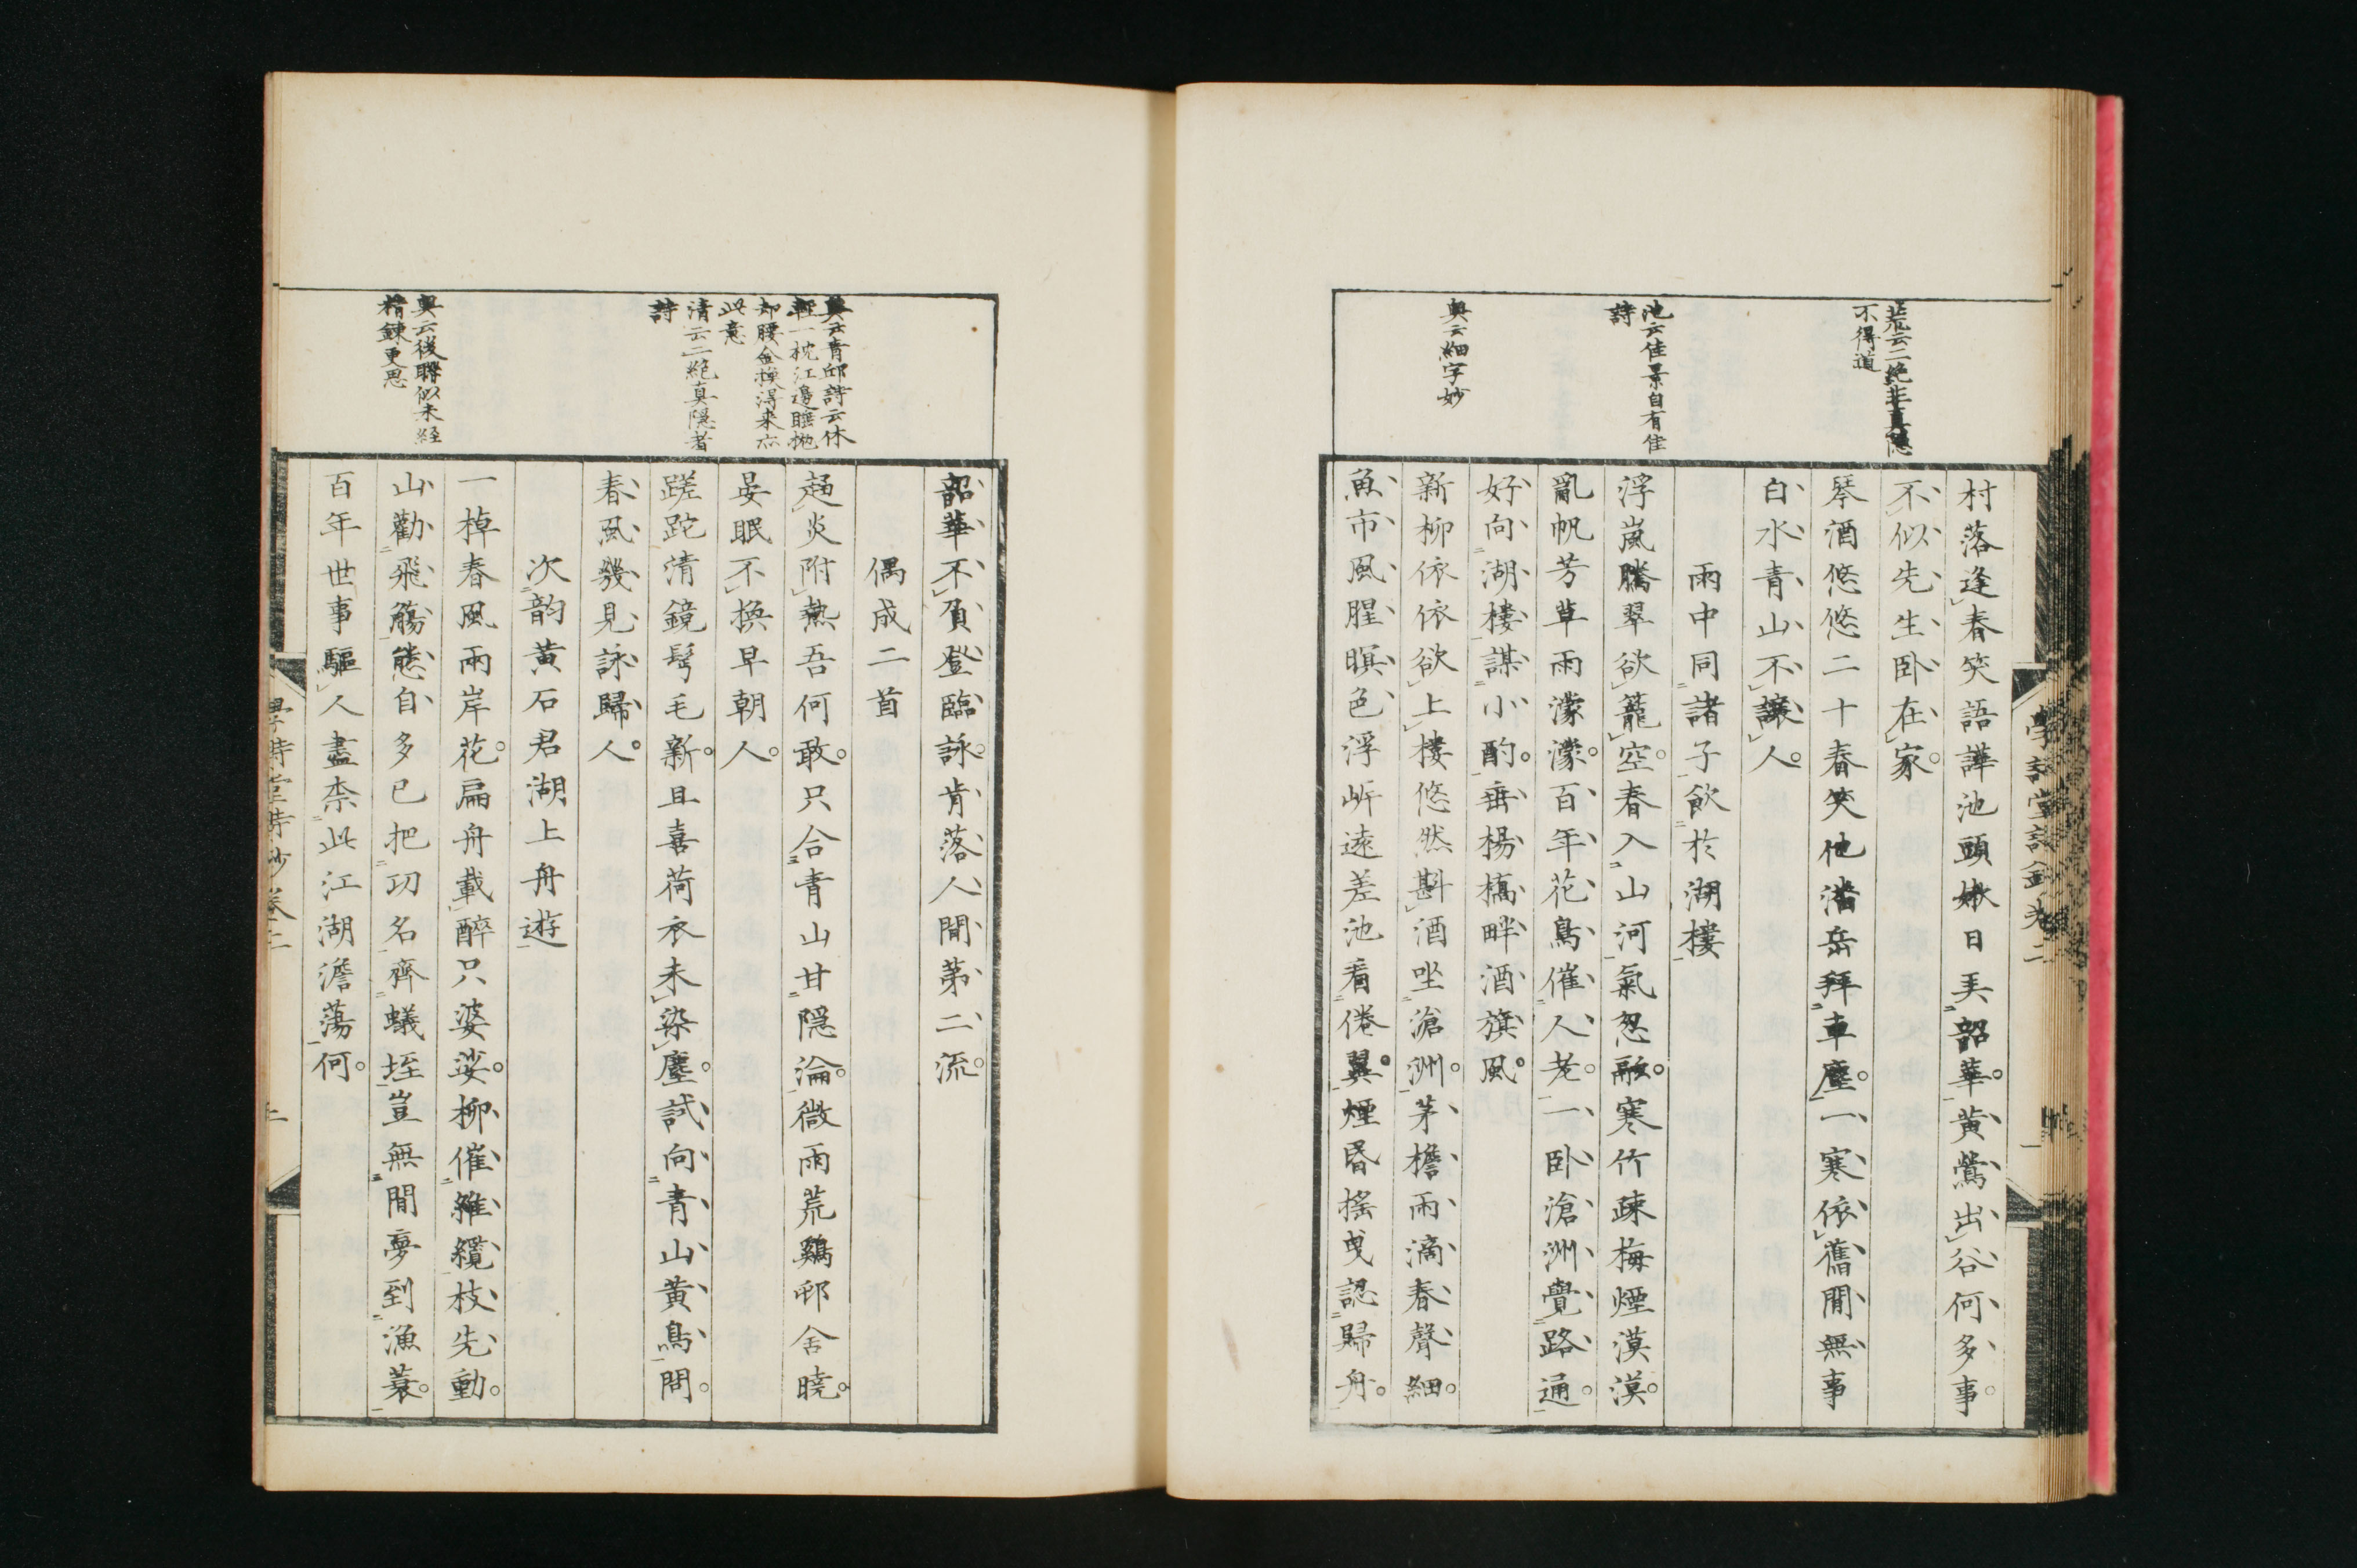 荒云二絶非真隠
不得道
池云佳景自有佳
詩
奥云細字妙
村落逢春笑語譁池頭嫩日美韶華黄鶯出谷何多事
不似先生卧在家
琴酒悠悠二十春笑他潘岳拜車塵一寒依舊閒無事
白水青山不讓人
雨中同諸子飲於湖樓
浮嵐騰翠欲籠空春入山河氣忽融寒竹疎梅煙漠漠
亂帆芳草雨濛濛百年花鳥催人老一卧滄洲覺路通
好向湖樓謀小酌垂楊橋畔酒旗風
新柳依依欲上樓悠然斟酒坐滄洲茅檐雨滴春聲細
魚市風腥暝色浮岍遠差池看倦翼煙昏搖曳認歸舟
學詩堂詩鈔卷二
一
奥云青邱詩云休
輕一枕江邊睡抛
却腰金換得来亦
此意
清云二絶真隠者
詩
奥云後聯似未経
精錬更思
韶華不負登臨詠肯落人間第二流
偶成二首
趨炎附熱吾何敢只合青山甘隠淪微雨荒鷄邨舍曉
晏眠不換早朝人
蹉跎清鏡髩毛新且喜荷衣未染塵試向青山黄鳥問
春風幾見詠歸人
次韵黄石君湖上舟遊
一棹春風兩岸花扁舟載醉只婆娑柳催維纜枝先動
山勸飛觴態自多已把功名齊蟻垤豈無閒夢到漁蓑
百年世事驅人盡柰此江湖澹蕩何
學詩堂詩鈔卷二
二